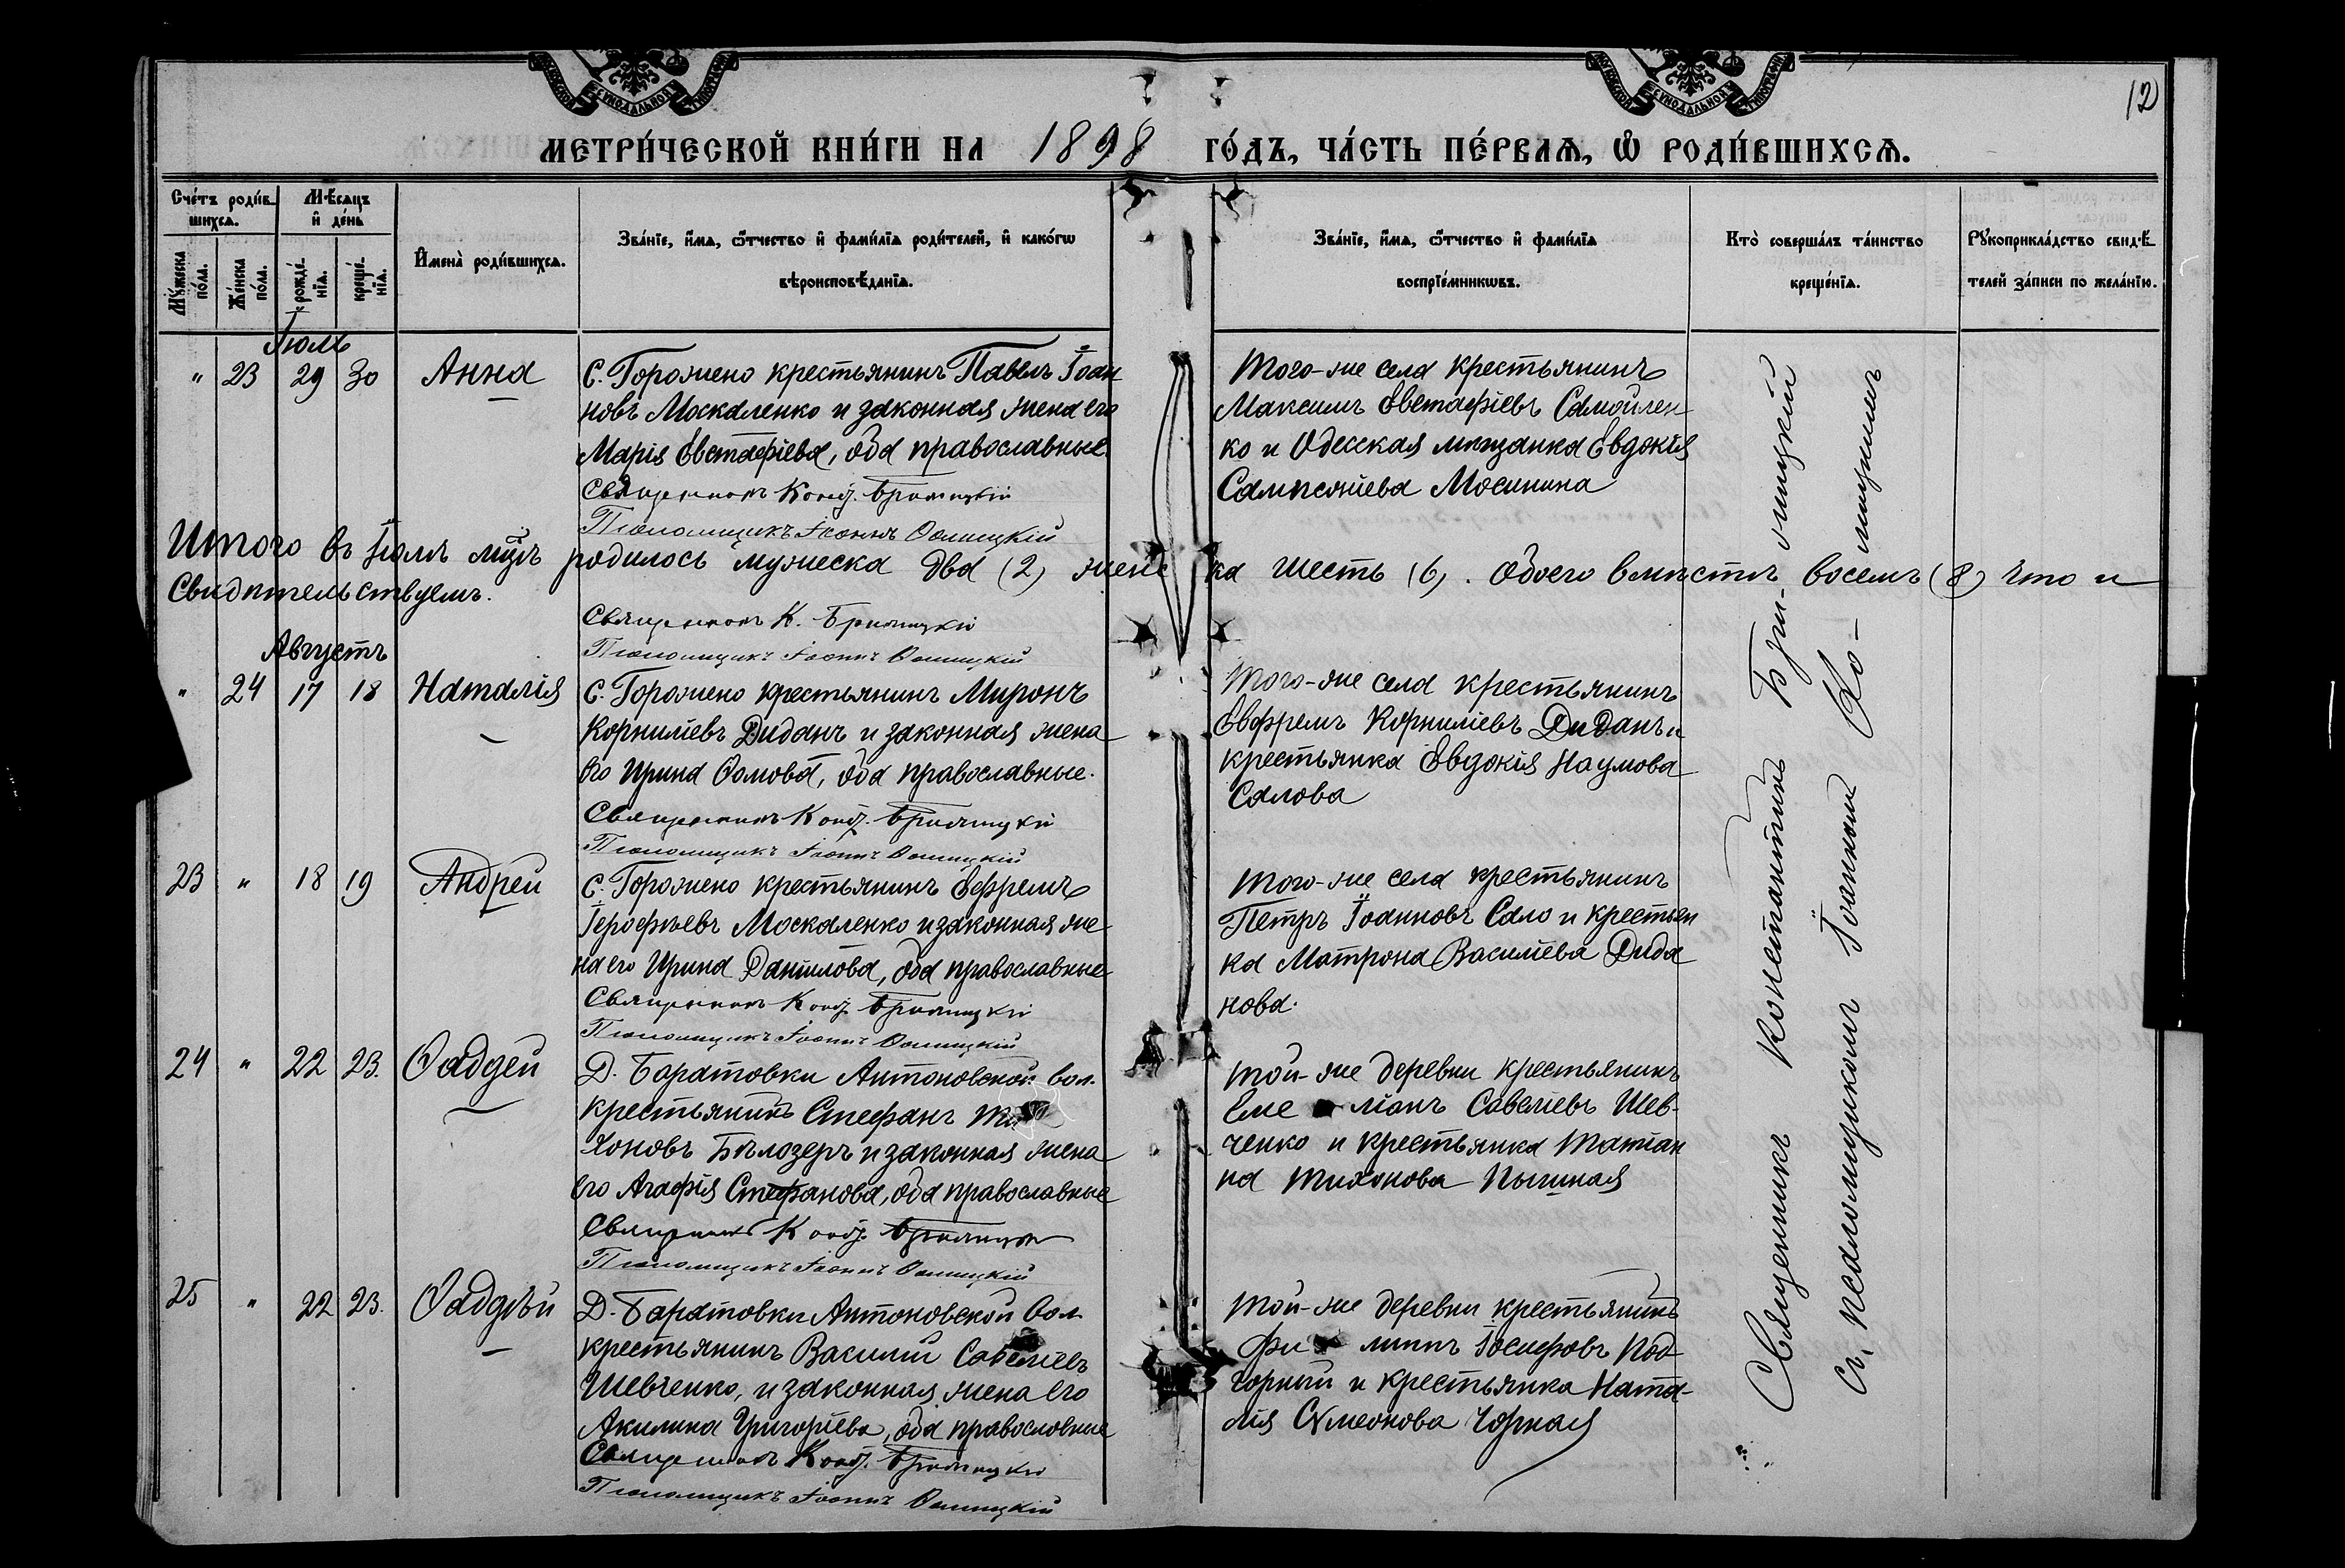 12
МЕТРИ́ЧЕСКОЙ КНИ́ГИ НА 1898 ГО́ДЪ, ЧА́СТЬ ПЕ́РВАѦ, Ѡ҆ РОДИ́ВШИХСѦ.
Сче́тъ роди́в-
шихсѧ.
Мѣ́сѧцъ
и҆ де́нь
Мꙋ́жеска
по́ла.
Же́нска
по́ла.
рожде́-
нїѧ.
креще́-
нїѧ.
И҆мена̀ роди́вшихсѧ.
Зва́нїе, и҆́мѧ, ѻ҆́тчество и҆ фами́лїѧ роди́телей, и҆ како́гѡ
вѣроисповѣ́данїѧ.
Зва́нїе, и҆́мѧ, ѻ҆́тчество и҆ фами́лїѧ
воспрїе́мникѡвъ.
Кто̀ соверша́лъ та́инство
креще́нїѧ.
Рꙋкоприкла́дство свидѣ́-
телей за́писи по жела́нїю.
Іюль
" 23 29 30 Анна
С. Горожено крестьянинъ Павелъ Іоан
новъ Москаленко и законная жена его
Марія Евстафіева, оба православные.
Священникъ Конст. Брилицкій
Псаломщикъ Іоаннъ Ѳомицкій
Того-же села крестьянинъ
Максимъ Евстафіевъ Самойлен
ко и Одесская мѣщанка Евдокія
Сампсоніева Мосинина
Итого въ Іюлѣ мцѣ родилось мужеска два (2) женс ка шесть (6). Обоего вмѣстѣ восемь (8) Что и
Свидѣтельствуемъ.
Священникъ К. Брилицкій
Псаломщикъ Іоаннъ Ѳомицкій
Августъ
" 24 17 18 Наталія
С. Горожено крестьянинъ Миронъ
Корниліевъ Диданъ и законная жена
его Ирина Ѳомова, оба православные.
Священникъ Конст. Брилицкій
Псаломщикъ Іоаннъ Ѳомицкій
Того-же села крестьянинъ
Евфремъ Корниліевъ Диданъ и
крестьянка Евдокія Наумова
Салова
23 " 18 19 Андрей
С. Горожено крестьянинъ Ефремъ
Іерофѣевъ Москаленко и законная же
на его Ирина Даніилова, оба православные
Священникъ Конст. Брилицкій
Псаломщикъ Іоаннъ Ѳомицкій
Того-же села крестьянинъ
Петръ Іоанновъ Сало и крестьян
ка Матрона Василіева Дида
нова.
24 " 22 23. Ѳаддей
Д. Баратовки Антоновской вол.
крестьянинъ Стефанъ Ти
хоновъ Бѣлозеръ и законная жена
его Агафія Стефанова, оба православные
Священникъ Конст. Брилицкій
Псаломщикъ Іоаннъ Ѳомицкій
Той-же деревни крестьянинъ
Еме ліанъ Савеліевъ Шев-
ченко и крестьянка Татіан
на Тихонова Пышная
25 " 22 23. Ѳаддѣй
Д. Баратовки Антоновской вол.
крестьянинъ Василій Савеліевъ
Шевченко, и законная жена его
Акилина Григоріева, оба православные
Священникъ Конст. Брилицкій
Псаломщикъ Іоаннъ Ѳомицкій
Той-же деревни крестьянинъ
Фи липпъ Іосифовъ Под
горный и крестьянка Ната-
лія Сѵмеонова Чорная
Священникъ Константинъ Бри-лицкій
съ псаломщикомъ Іоанномъ Ѳо-мицкимъ